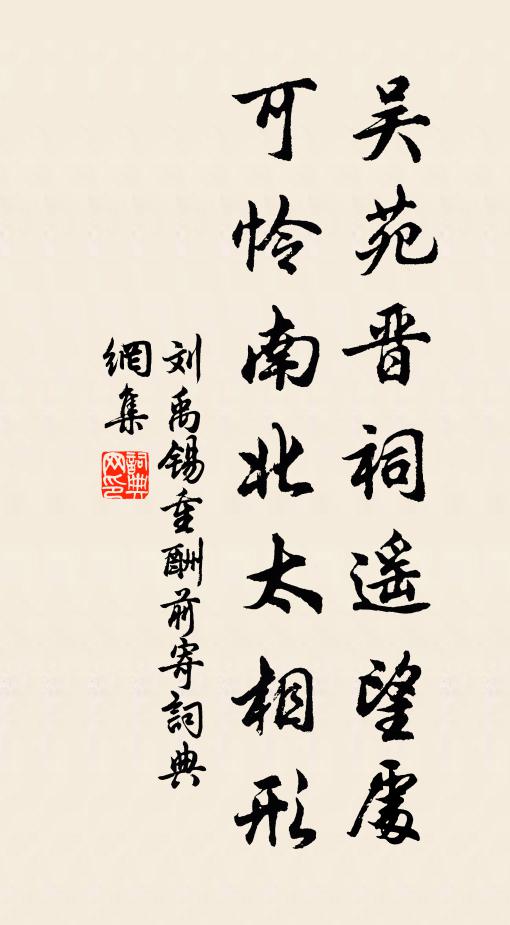 吴苑晋祠遥望處
可怜南北太相形
刘禹锡重酬前寄詞典
網集
詞典
网印